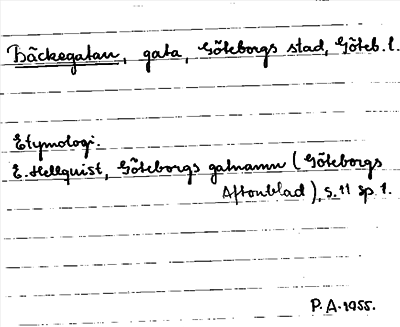 Bäckegatan, gata, Göteborgs stad, Göteb. l.
Etymologi.
E. Hellquist, Göteborgs gatnamn (Göteborgs
Aftonblad), s. 11 sp. 1.
P. A. 1955.